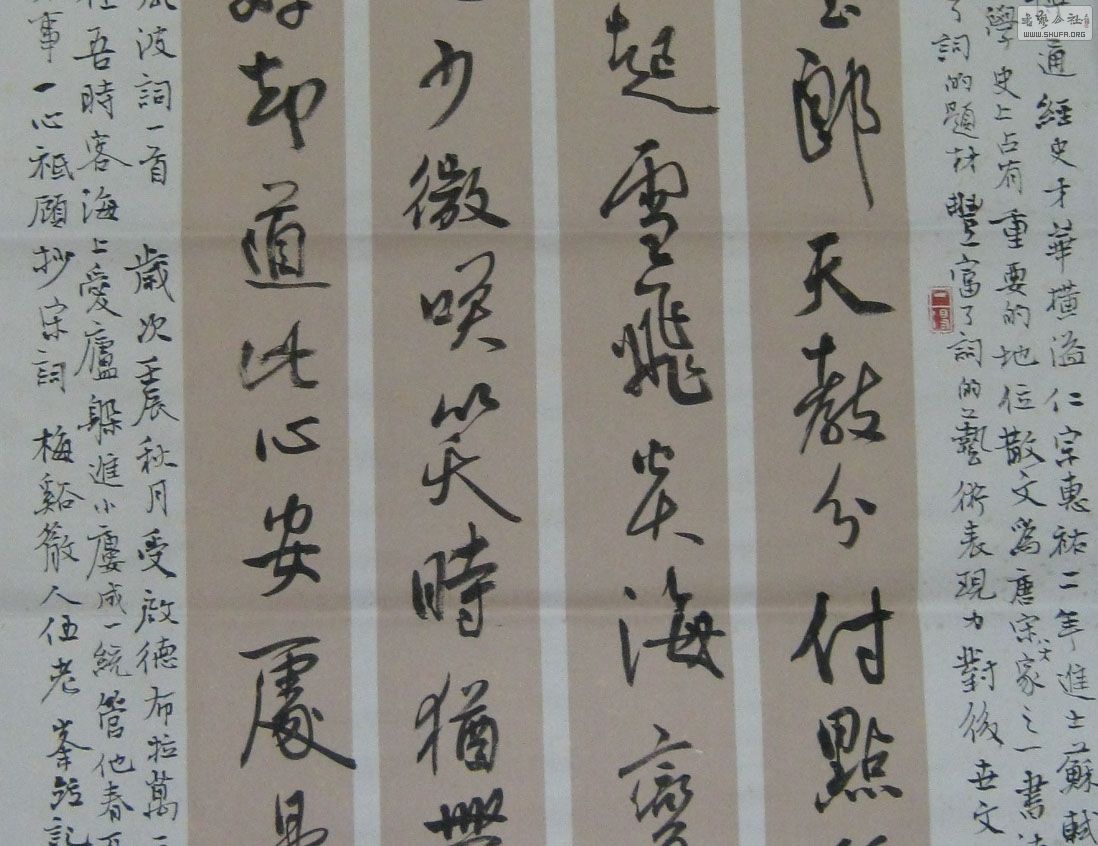 書藝公社
WWW.SHUFA.ORG
通經史才華橫溢仁宗惠祐二年進士蘇軾
學史上占有重要的地位散文為唐宋八大家之一書法
了詞的題材豐富了詞的藝術表現力對後世文
郎天教分付點
起雪飛炎海變
少微咲笑時猶帶
却道此心安處是
風波詞一首 歲次壬辰秋月受啟德布拉萬
在吾時客海上愛廬躲進小廔成一統管他春
事一心祗顧抄宋詞 梅谿散人伍老峯記